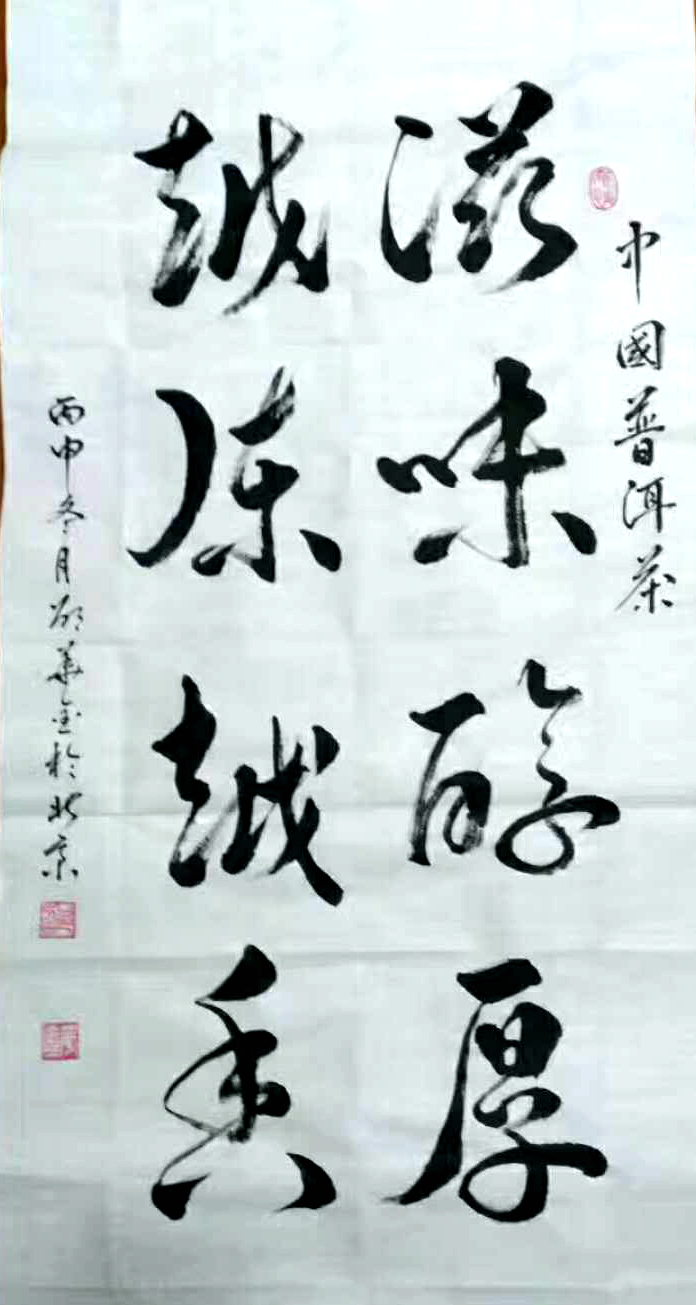 中國普洱茶
滋味醇厚
越陈越香
丙申冬月華金於北京